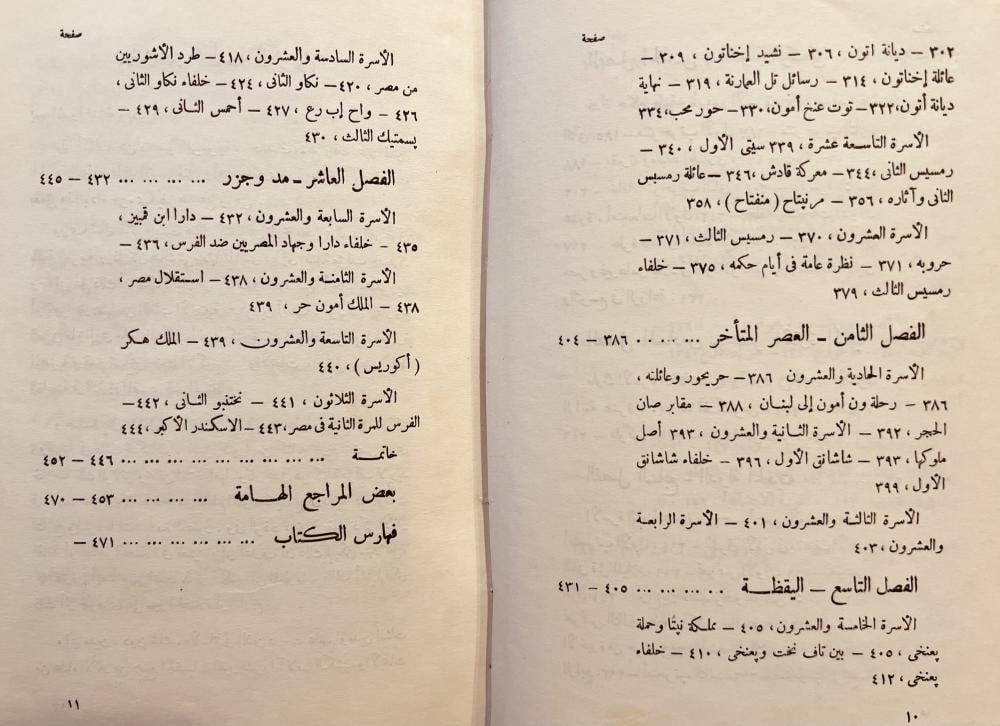 صفحة
٣٠٢ – ديانة آتون ، ٣٠٦ – نشيد إخناتون ، ٣٠٩ –
عائلة إخناتون ، ٣١٤ – رسائل تل العمارنة ، ٣١٩ – نهاية
ديانة أتون، ٣٢٢– توت عنخ أمون، ٣٣٠– حور محب، ٣٣٤
الأسرة التاسعة عشرة ، ٣٣٩ سيتى الأول ، ٣٤٠ –
رمسيس الثانى ، ٣٤٤– معركة قادش ، ٣٤٦– عائلة رمسيس
الثانى وآثاره ، ٣٥٦ – مرنپتاح ( منفتاح ) ، ٣٥٨
الأسرة العشرون ، ٣٧٠ – رمسيس الثالث ، ٣٧١ –
حروبه ، ٣٧١ – نظرة عامة فى أيام حكمه ، ٣٧٥ – خلفاء
رمسيس الثالث ، ٣٧٩
الفصل الثامن – العصر المتأخر ... .. . . ٣٨٦ – ٤٠٤
الأسرة الحادية والعشرون ٣٨٦– حريحور وعائلته ،
٣٨٦ – رحلة ون أمون إلى لبنان ، ٣٨٨ – مقابر صان
الحجر ، ٣٩٢ – الأسرة الثانية والعشرون ، ٣٩٣ أصل
ملوكها ، ٣٩٣ – شاشانق الأول ، ٣٩٦ – خلفاء شاشانق
الأول ، ٣٩٩
الأسرة الثالثة والعشرون ، ٤٠١ – الأسرة الرابعة
والعشرون ، ٤٠٣
الفصل التاسع – اليقظة . .. ... ... ... ٤٠٥ – ٤٣١
الأسرة الخامسة والعشرون ، ٤٠٥ – مملكة نپتا وحملة
پعنخى ، ٤٠٥ – بين تاف نخت وپعنخى ، ٤١٠ – خلفاء
پعنخى ، ٤١٢
١٠
صفحة
الأسرة السادسة والعشرون ، ٤١٨ – طرد الأشوريين
من مصر ، ٤٢٠ – نكاو الثانى ، ٤٢٤ – خلفاء نكاو الثانى ،
٤٢٦ – واح إب رع ، ٤٢٧ – أحمس الثانى ، ٤٢٩ –
پسمتيك الثالث ، ٤٣٠
الفصل العاشر – مد وجزر ... ... ... ... ٤٣٢ – ٤٤٥
الأسرة السابعة والعشرون ، ٤٣٢ – دارا ابن قمبيز ،
٤٣٥ – خلفاء دارا وجهاد المصريين ضد الفرس ، ٤٣٦ –
الأسرة الثامنة والعشرون ، ٤٣٨ – استقلال مصر ،
٤٣٨ – الملك أمون حر ، ٤٣٩
الأسرة التاسعة والعشرون ، ٤٣٩ – الملك هكر
( أكوريس ) ، ٤٤٠
الأسرة الثلاثون ، ٤٤١ – نختنبو الثانى ، ٤٤٢ –
الفرس للمرة الثانية فى مصر، ٤٤٣– الاسكندر الأكبر ، ٤٤٤
خاتمة ... ... ... ... ... ... ... ... ٤٤٦ – ٤٥٢
بعض المراجع الهامة ... ... ... ... ٤٥٣ – ٤٧٠
فهارس الكتاب ... ... ... ... ... ... ٤٧١ –
١١